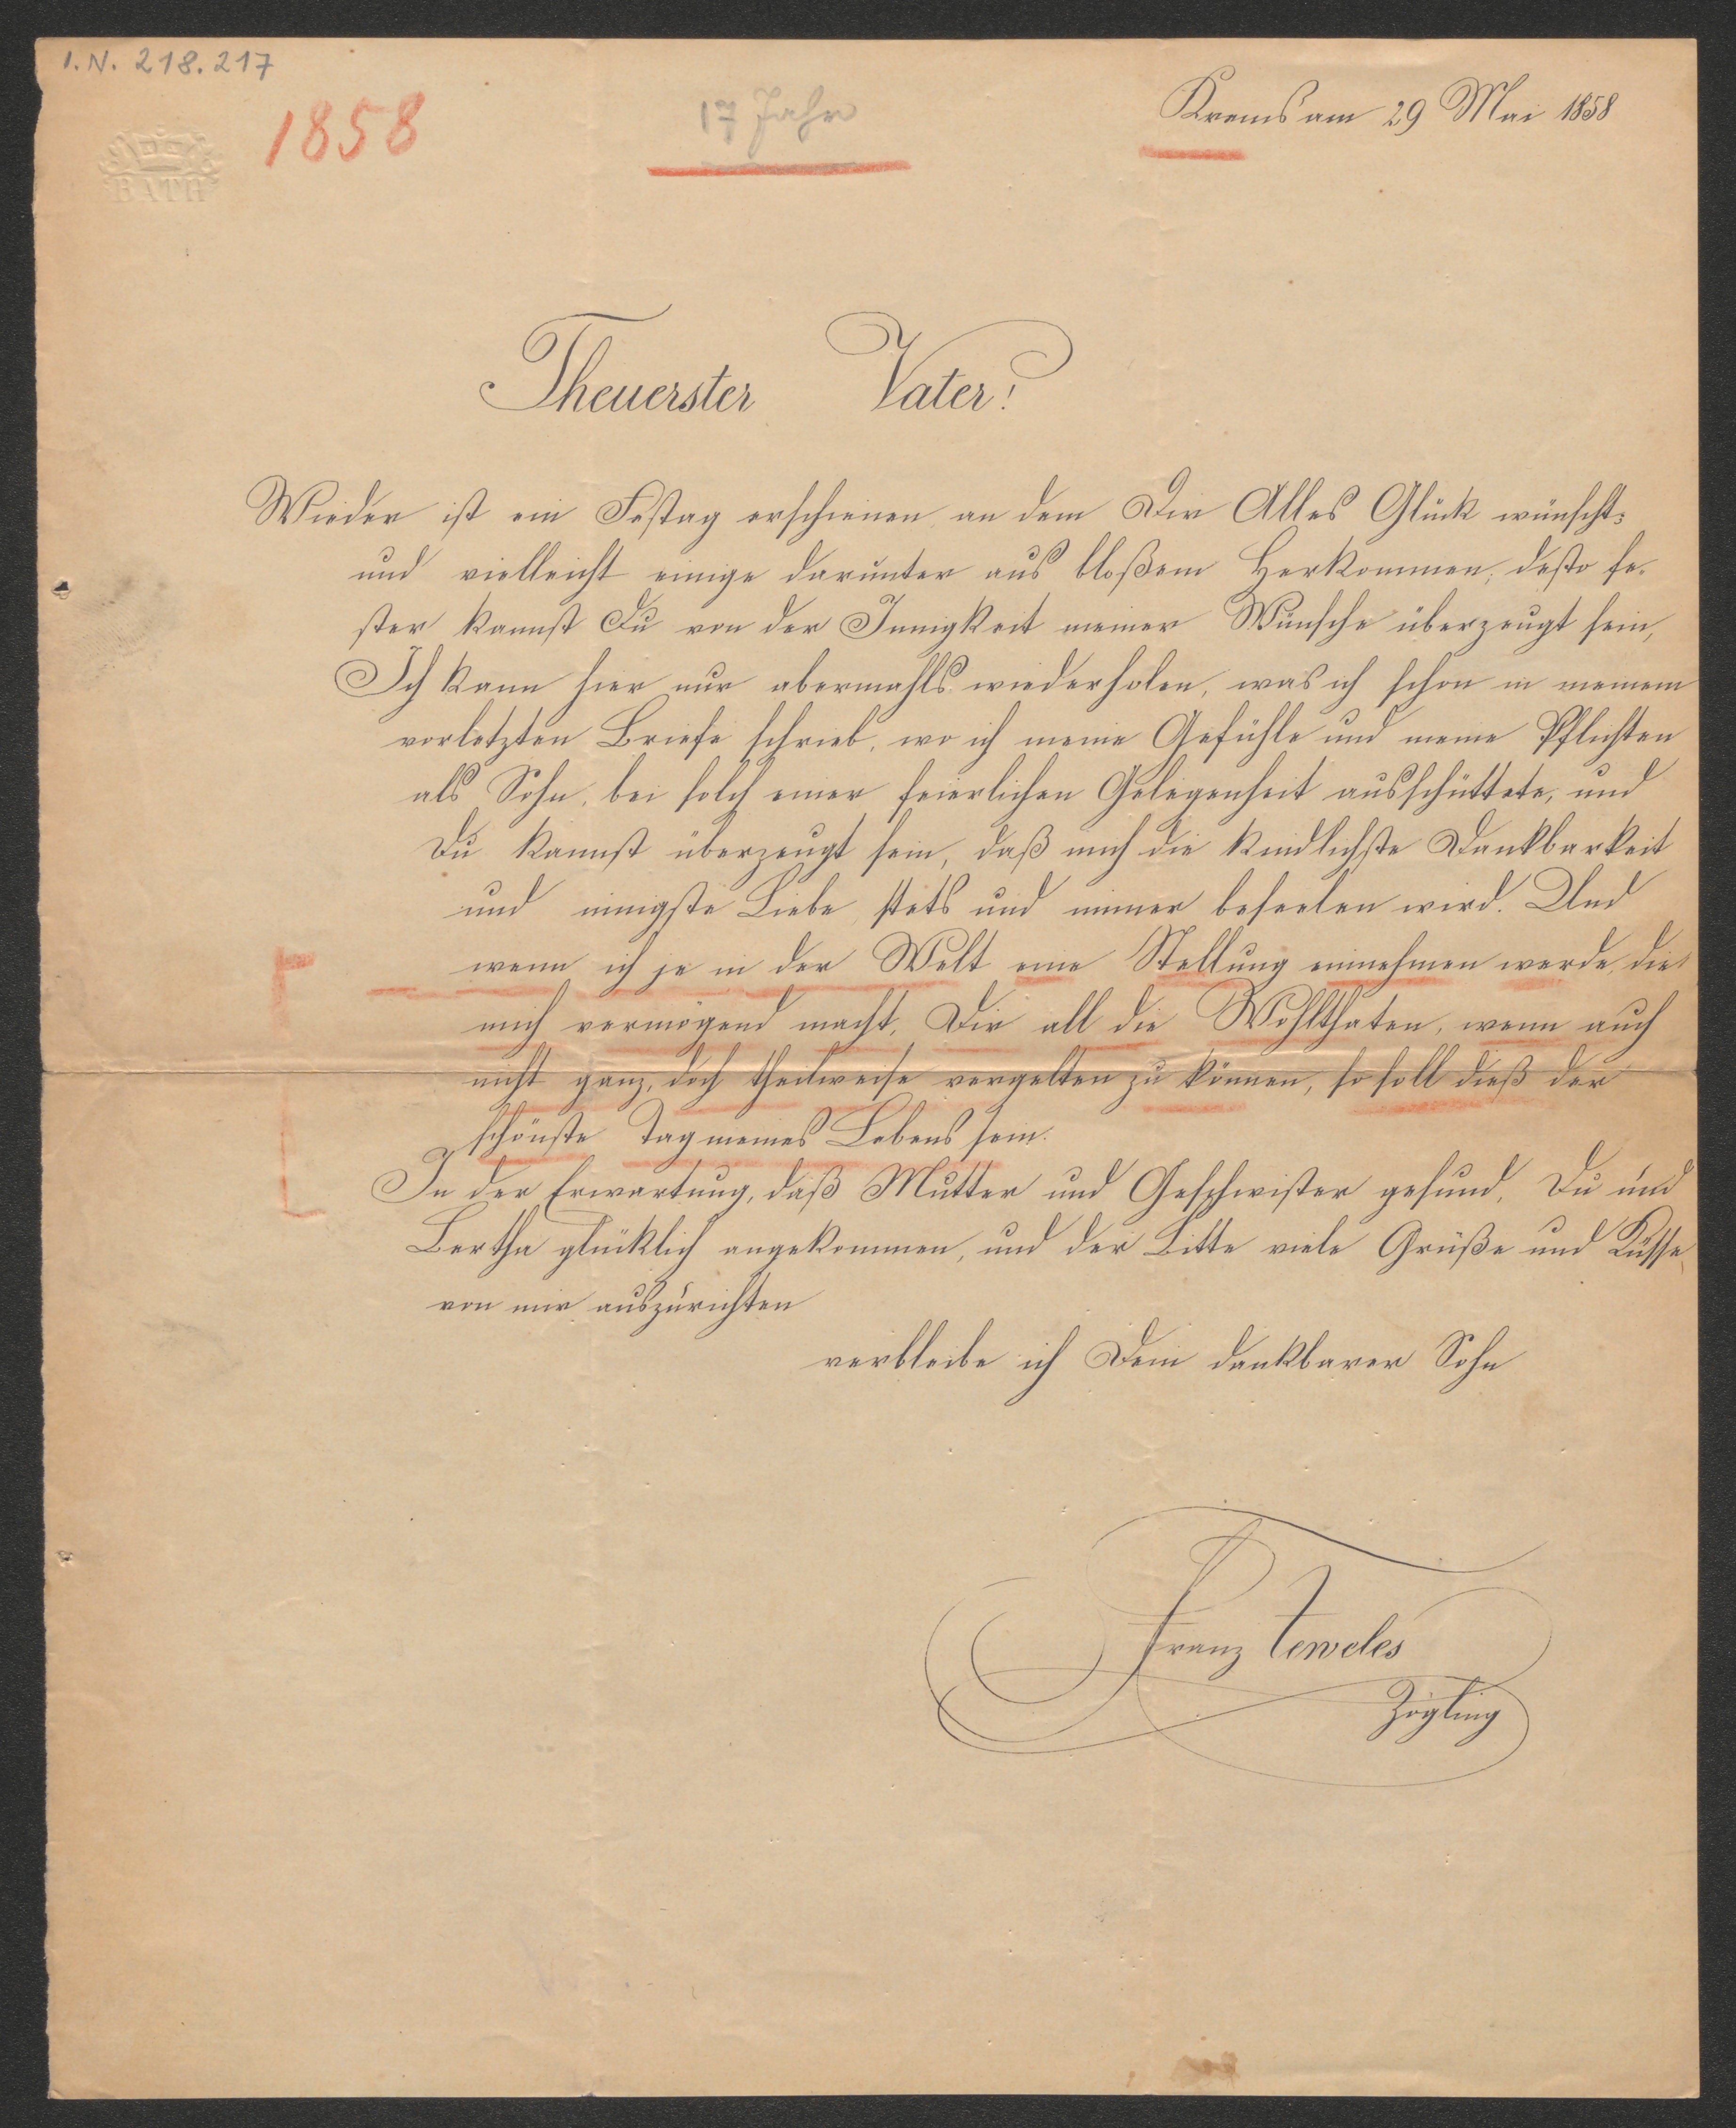 I.N. 218.217
1858
17 Jahr
Krems am 29 Mai 1858
BATH
Theuerster Vater!
Wieder ist ein Festag erschienen an dem Dir Alles Glück wünscht:
und vielleicht einige darunter aus bloßem Herkommen; desto fe-
ster kannst Du von der Innigkeit meiner Wünsche überzeugt sein,
Ich kann hier nur abermahls wiederholen, was ich schon in meinem
vorletzten Briefe schrieb, wo ich meine Gefühle und meine Pflichten
als Sohn, bei solch einer feierlichen Gelegenheit ausschüttete, und
Du kannst überzeugt sein, daß mich die kindlichste Dankbarkeit
und innigste Liebe stets und immer beseelen wird. Und
wenn ich je in der Welt eine Stellung einnehmen werde, die
mich vermögend macht, Dir all die Wohlthaten, wenn auch
nicht ganz, doch theilweise vergelten zu können, so soll dieß der
schönste Tag meines Lebens sein.
In der Erwartung, daß Mutter und Geschwister gesund, Du und
Bertha glücklich angekommen, und der Bitte viele Grüße und Küsse
von mir auszurichten
verbleibe ich Dein dankbarer Sohn
Franz Teweles
Zögling